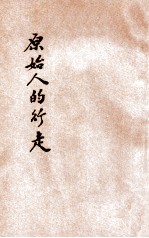 原始人的行走